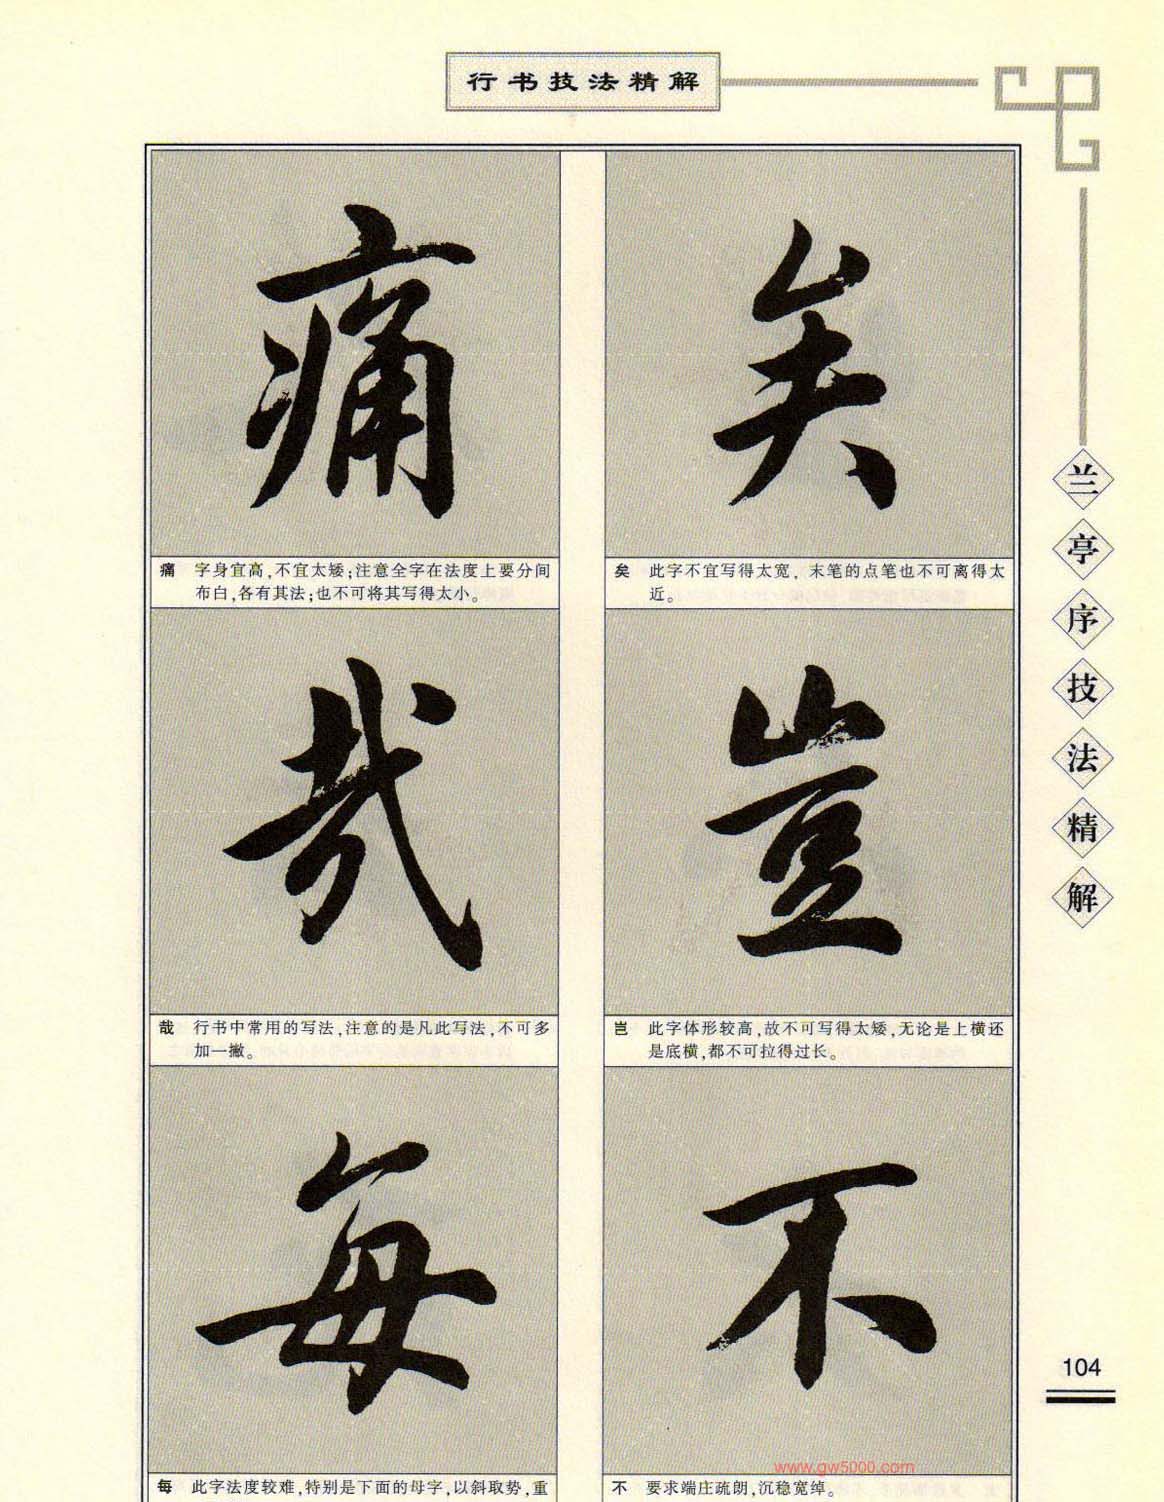 行书技法精解
矣
矣 此字不宜写得太宽，末笔的点笔也不可离得太
近。
岂
岂 此字体形较高，故不可写得太矮，无论是上横还
是底横，都不可拉得过长。
不
不 要求端庄疏朗，沉稳宽绰。
痛
痛 字身宜高，不宜太矮；注意全字在法度上要分间
布白，各有其法；也不可将其写得太小。
哉
哉 行书中常用的写法，注意的是凡此写法，不可多
加一撇。
每
每 此字法度较难，特别是下面的母字，以斜取势，重
兰亭序技法精解
104
www.gw5000.com